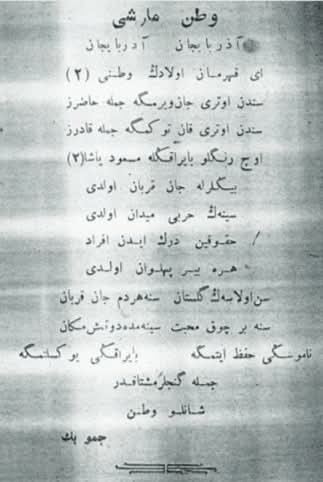 وطن مارشى
آذربايجان آذربايجان
اى قهرمان اولادك وطنى (٢)
سندن اوترى جان ويرمگه جمله حاضرز
سندن اوترى قان توكمگه جمله قادرز
اوچ رنگلو بايراقكله مسعود ياشا (٢)
بيڭلرله جان قربان اولدى
سينه‌ڭ حربى ميدان اولدى
حقوقين درك ايدن افراد
هره بير پهلوان اولدى
سن اولاسه‌ڭ گلستان سنه هردم جان قربان
سنه بر چوق محبت سينه‌مده دوتمش مكان
ناموسڭى حفظ ايتمگه بايراقڭى يوكسلتمگه
جمله گنجلر مشتاقدر
شانلو وطن
جمو بك